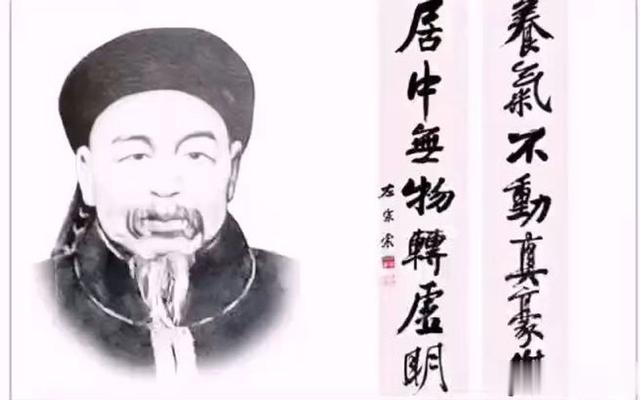 養氣不動真豪
居中無物轉虛明
左宗棠